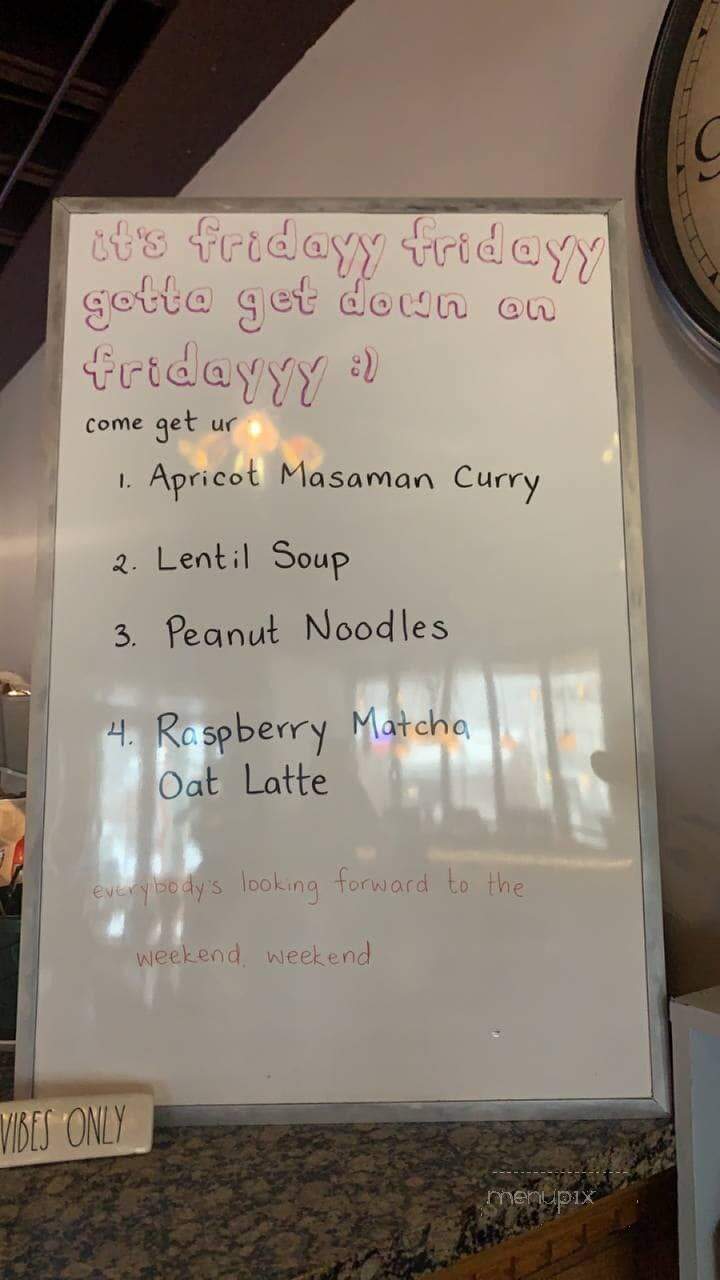 it's fridayy fridayy
gotta get down on
fridayyy :)
come get ur
1. Apricot Masaman Curry
2. Lentil Soup
3. Peanut Noodles
4. Raspberry Matcha
Oat Latte
everybody's looking forward to the
weekend, weekend
VIBES ONLY
menupix
9